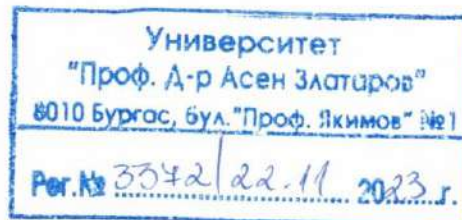 Университет
"Проф. Д-р Асен Златаров"
8010 Бургас, бул."Проф. Якимов" №1
Рег.№ 3372/22.11 2023 г.